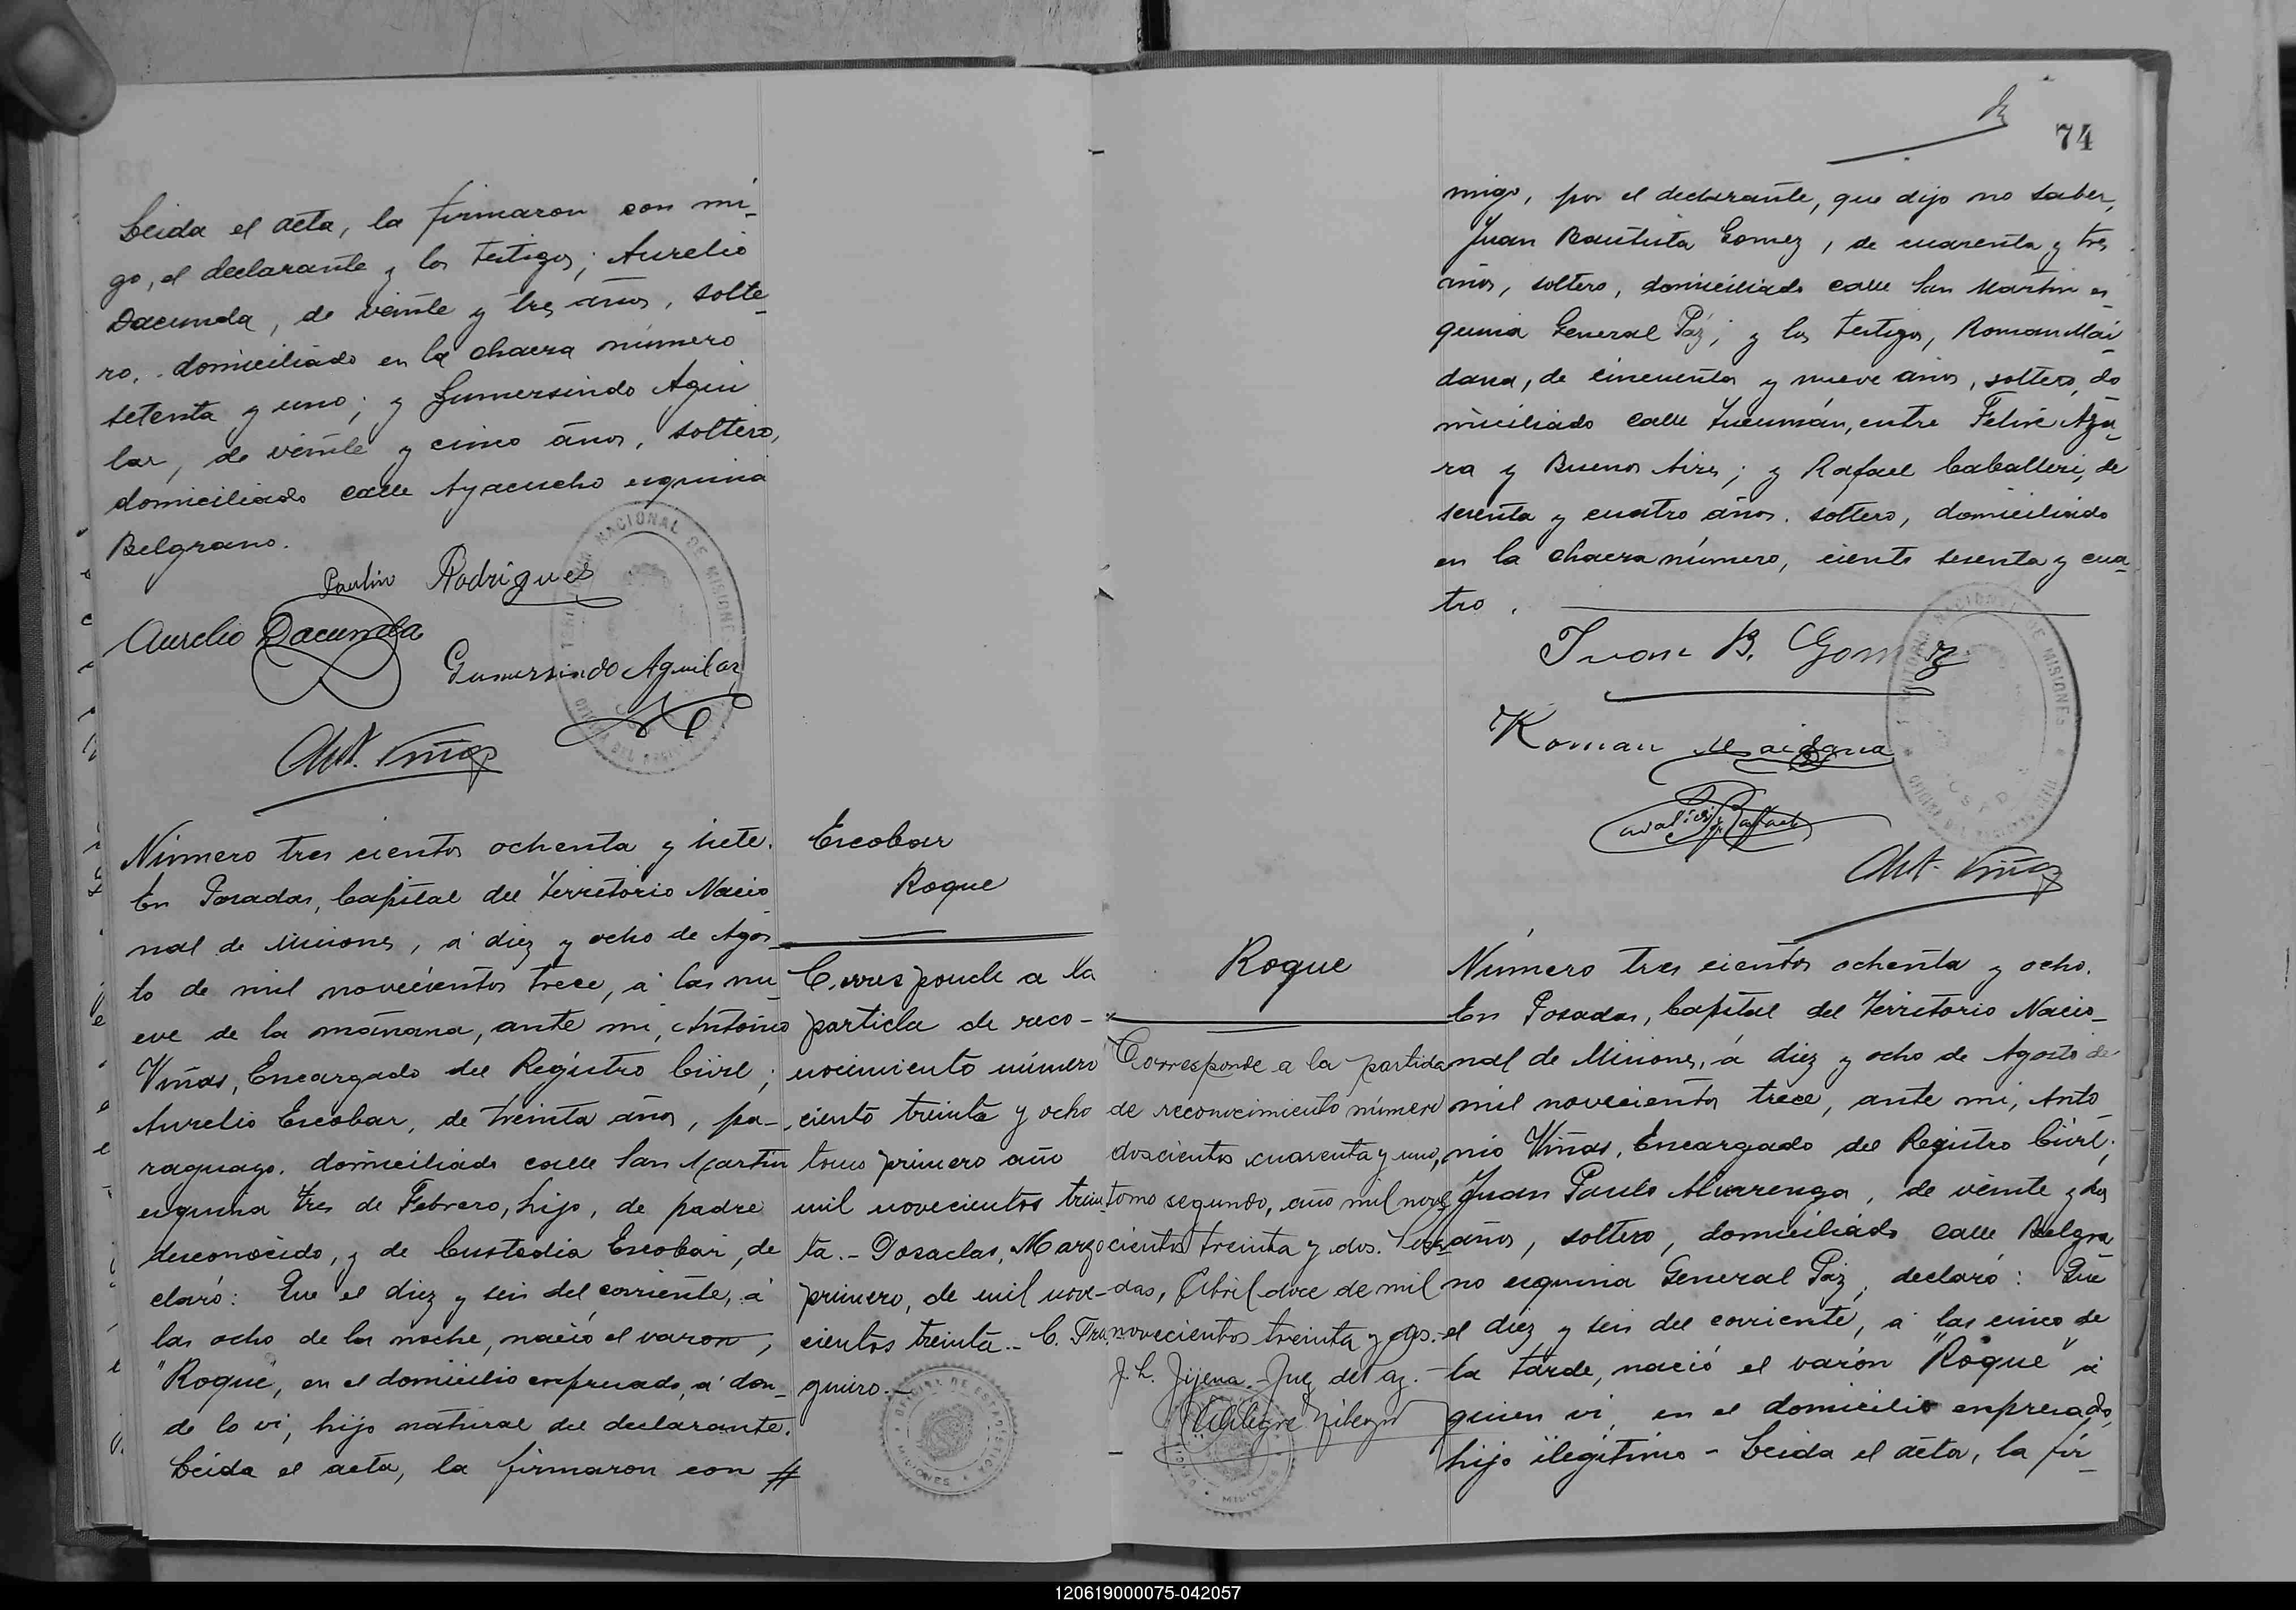 Leida el acta, la firmaron con mi_
go, el declarante y los testigos; Aurelio
Dacunda, de veinte y tres años, solte_
ro, domiciliado en la chacra número
setenta y uno; y Gumersindo Agui
lar, de veinte y cinco años, soltero,
domiciliado calle Ayacucho esquina
Belgrano.
Paulin Rodrigues
Aurelio Dacunda
Gumersindo Aguilar
Ant. Viñas
Número tres cientos ochenta y siete.
En Posadas, Capital del Territorio Nacio
nal de Misiones, á diez y ocho de Agos_
to de mil novecientos trece, á las nu_
eve de la mañana, ante mi, Antonio
Viñas, Encargado del Registro Civil;
Aurelio Escobar, de treinta años, pa_
raguayo, domiciliado calle San Martin
esquina Tres de Febrero, hijo, de padre
desconocido, y de Custodia Escobar, de
claró: Que el diez y seis del corriente, á
las ocho de la noche, nació el varon,
"Roque", en el domicilio expresado, á don_
de lo vi, hijo natural del declarante.
Leida el acta, la firmaron con #
Escobar
Roque
Corresponde a la
partida de reco-
nocimiento número
ciento treinta y ocho
tomo primero año
mil novecientos trein
ta.- Posadas, Marzo
primero, de mil nove-
cientos treinta.- C. Tra
guiro.-
OFICIAL DE ESTADISTICA
MISIONES
74
migo, por el declarante, que dijo no saber,
Juan Bautista Gomez, de cuarenta y tres
años, soltero, domiciliado calle San Martin es
quina General Páz; y los testigos, Roman Mai_
dana, de cincuenta y nueve años, soltero, do_
miciliado calle Tucumán, entre Felix Aza_
ra y Buenos Aires; y Rafael Caballeri, de
sesenta y cuatro años, soltero, domiciliado
en la chacra número, ciento sesenta y cua_
tro.
Juan B. Gomez
Roman Maidana
Ant. Viñas
Roque
Corresponde a la partida
de reconocimiento número
doscientos cuarenta y uno,
tomo segundo, año mil nove
cientos treinta y dos. Posa
das, Abril doce de mil
novecientos treinta y dos.-
J. L. Jijena - Juez de Paz.-
Número tres cientos ochenta y ocho.
En Posadas, Capital del Territorio Nacio_
nal de Misiones, á diez y ocho de Agosto de
mil novecientos trece, ante mi, Anto_
nio Viñas, Encargado del Registro Civil;
Juan Paulo Alvarenga, de veinte y dos
años, soltero, domiciliado calle Belgra_
no esquina General Paz, declaró: Que
el diez y seis del corriente, á las cinco de
la tarde, nació el varón "Roque" á
quien vi, en el domicilio expresado,
hijo ilegítimo - Leida el acta, la fir_
120619000075-042057